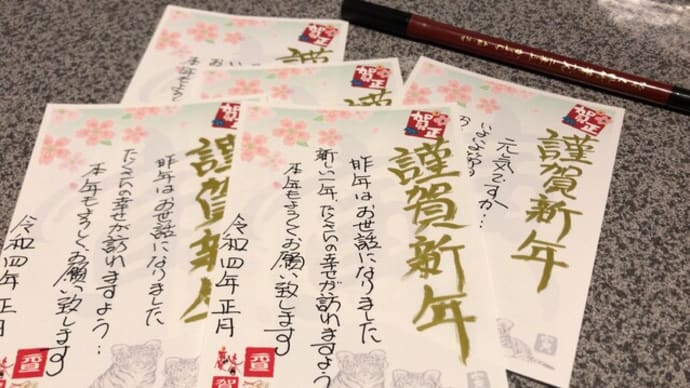 賀正
謹
本年もよ
賀正
謹
賀正
謹賀新年
元気ですか…
賀正
謹賀新年
昨年はお世話になりました
たくさんの幸せが訪れますよう…
本年もよろしくお願い致します
令和四年 正月
賀正
謹賀新年
昨年はお世話になりました
新しい一年、たくさんの幸せが訪れますよう
本年もよろしくお願い致します
令和四年 正月